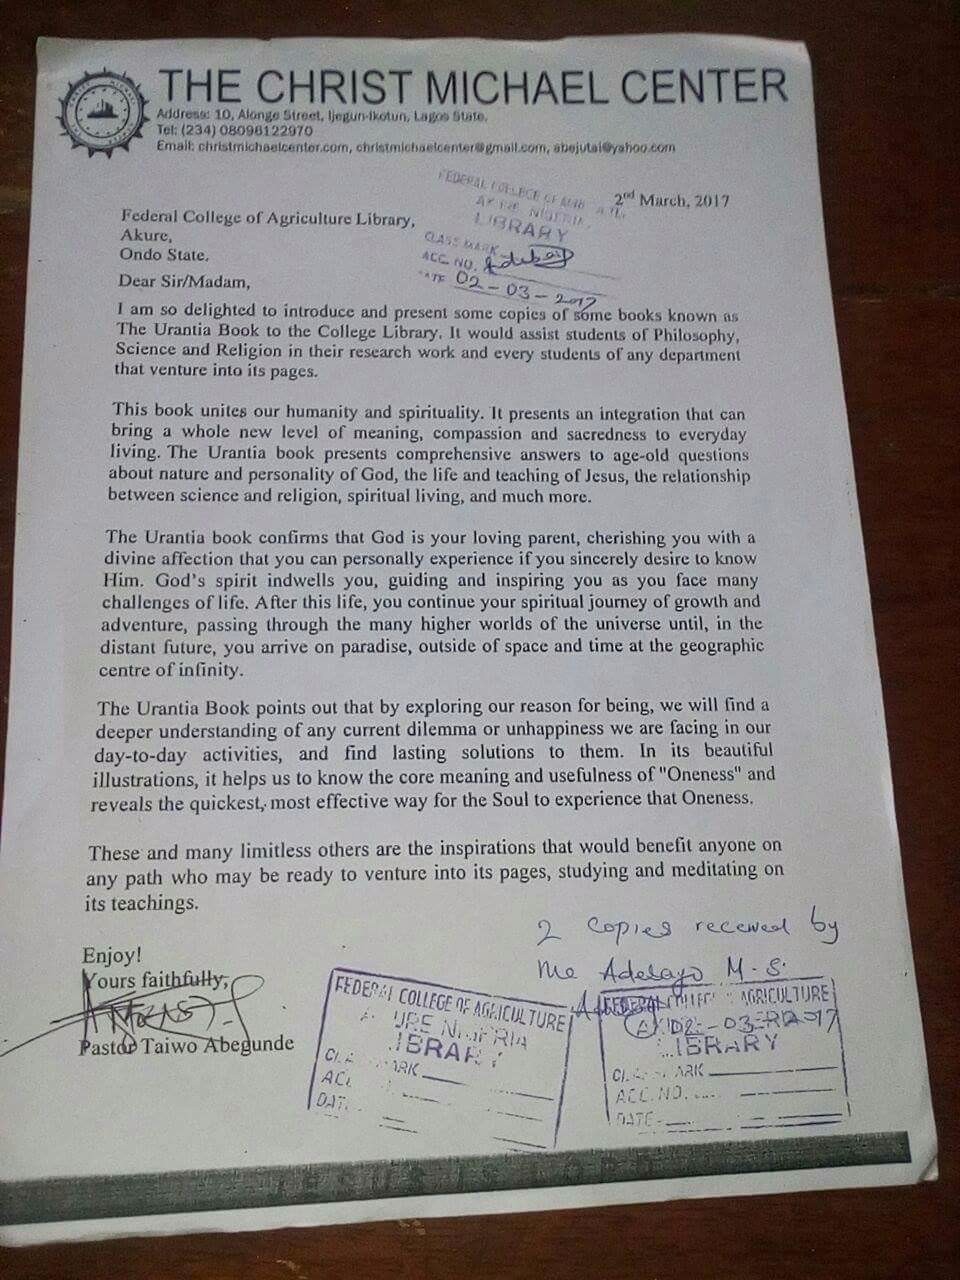 THE CHRIST MICHAEL CENTER
Address: 10, Alonge Street, Ijegun-Ikotun, Lagos State.
Tel: (234) 08098122970
Email: christmichaelcenter.com, christmichaelcenter@gmail.com, abejutai@yahoo.com
2nd March, 2017
FEDERAL COLLEGE OF
LIBRARY
CLASS MARK
ACC. NO.
02-03-2017
Federal College of Agriculture Library,
Akure,
Ondo State.
Dear Sir/Madam,
I am so delighted to introduce and present some copies of some books known as
The Urantia Book to the College Library. It would assist students of Philosophy,
Science and Religion in their research work and every students of any department
that venture into its pages.
This book unites our humanity and spirituality. It presents an integration that can
bring a whole new level of meaning, compassion and sacredness to everyday
living. The Urantia book presents comprehensive answers to age-old questions
about nature and personality of God, the life and teaching of Jesus, the relationship
between science and religion, spiritual living, and much more.
The Urantia book confirms that God is your loving parent, cherishing you with a
divine affection that you can personally experience if you sincerely desire to know
Him. God's spirit indwells you, guiding and inspiring you as you face many
challenges of life. After this life, you continue your spiritual journey of growth and
adventure, passing through the many higher worlds of the universe until, in the
distant future, you arrive on paradise, outside of space and time at the geographic
centre of infinity.
The Urantia Book points out that by exploring our reason for being, we will find a
deeper understanding of any current dilemma or unhappiness we are facing in our
day-to-day activities, and find lasting solutions to them. In its beautiful
illustrations, it helps us to know the core meaning and usefulness of "Oneness" and
reveals the quickest, most effective way for the Soul to experience that Oneness.
These and many limitless others are the inspirations that would benefit anyone on
any path who may be ready to venture into its pages, studying and meditating on
its teachings.
2 copies received by
me Adelayo M.S.
Enjoy!
Yours faithfully,
Pastor Taiwo Abegunde
FEDERAL COLLEGE OF AGRICULTURE
LIBRARY
FEDERAL AGRICULTURE
02-03-2017
LIBRARY
ACC. NO.
DATE
JESUS IS LORD